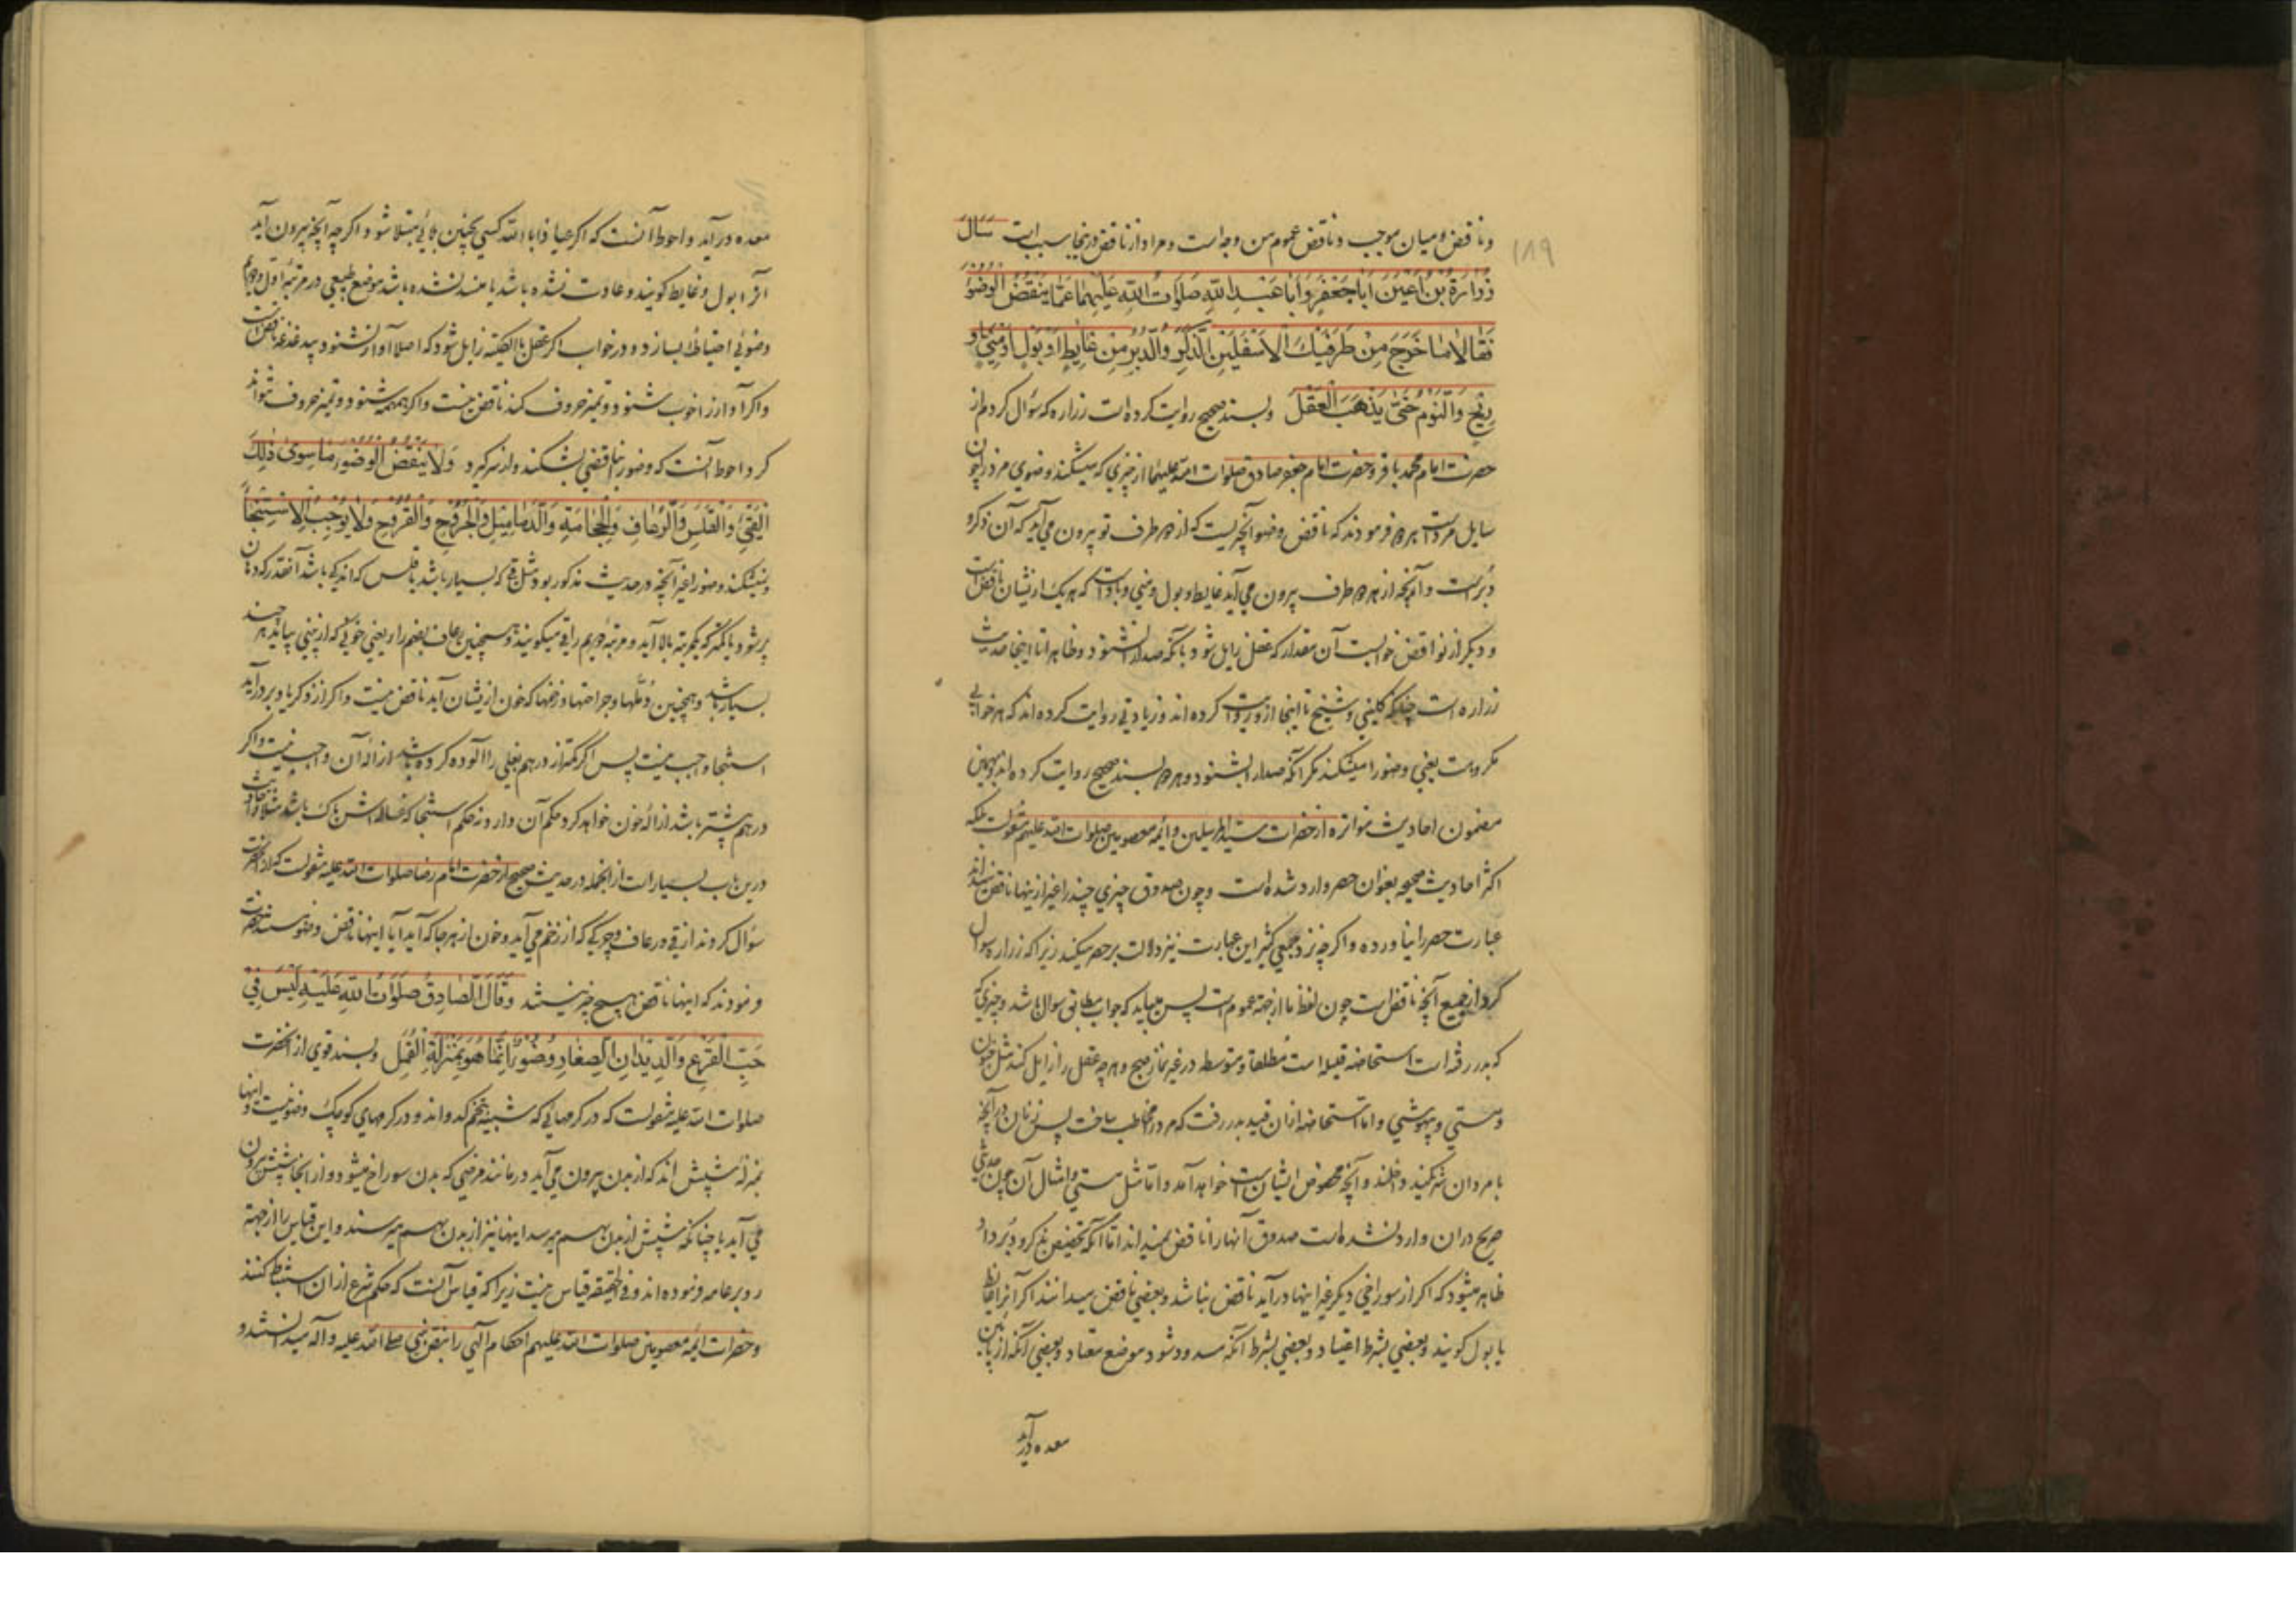 ۱۸۹
و ناقض و میان موجب و ناقض عموم من وجه است و مراد از ناقض درینجا سبب است سَأَلَ
زُرَارَةُ بْنُ اَعْيَنَ اَبَا جَعْفَرٍ وَاَبَا عَبْدِ اللّٰهِ صَلَوَاتُ اللّٰهِ عَلَيْهِمَا عَمَّا يَنْقُضُ الْوُضُوءَ
فَقَالَا مَا خَرَجَ مِنْ طَرَفَيْكَ الْاَسْفَلَيْنِ الذَّكَرِ وَالدُّبُرِ مِنْ غَايِطٍ اَوْ بَوْلٍ اَوْ مَنِيٍّ اَوْ
رِيْحٍ وَالنَّوْمِ حَتّٰى يَذْهَبَ الْعَقْلَ و بسند صحیح روایت کرده است زراره که سؤال کردم از
حضرت امام محمد باقر و حضرت امام جعفر صادق صلوات الله علیهما از چیزی که میشکند وضوی مرد را چون
سایل مردست هر دو فرمودند که ناقض وضو آنچیزیست که از دو طرف تو بیرون می آید که آن ذکر و
دبرست و آنچه از هر دو طرف بیرون می آید غایط و بول و منی و بادست که هر یک ازیشان ناقض است
و دیگر از نواقض خوابست آن مقدار که عقل زایل شود بآنکه صدا را نشنود و ظاهرا تا اینجا حدیث
زراره است چنانکه کلینی و شیخ تا اینجا ازو روایت کرده اند و زیادتی روایت کرده اند که هر خوابی
مکروهست یعنی وضو را میشکند مگر آنکه صدا را بشنود و هر دو بسند صحیح روایت کرده اند و بهمین
مضمون احادیث متواتره از حضرات سید المرسلین و ائمه معصومین صلوات الله علیهم منقولست بلکه
اکثر احادیث صحیحه بعنوان حصر وارد شده است و چون صدوق چیزی چند را غیر ازینها ناقض میداند
عبارت حصر را نیاورده و اگر چه نزد جمعی کثیر این عبارت نیز دلالت بر حصر میکند زیرا که زراره سوال
کرد از جمیع آنچه ناقض است چون لفظ ما از جهة عموم است پس میباید که جواب مطابق سوال باشد و چیزی که
که بدر رفته است استحاضه قلیله است مطلقا و متوسطه در غیر نماز صبح و هر چه عقل را زایل کند مثل جنون
و مستی و بیهوشی و اما استحاضه ازان قید بدر رفت که مرد را مخاطب ساخت پس زنان در آنچه
با مردان شریکند داخلند و آنچه مخصوص ایشان است خواهد آمد و اما مثل مستی و امثال آن چون حدیثی
صریح دران وارد نشده است صدوق آنها را ناقض نمیداند اما آنکه تخصیص بذکر و دبر داد
ظاهر میشود که اگر از سوراخی دیگر غیر اینها درآید ناقض نباشد و بعضی ناقض میدانند اگر آنرا غایط
یا بول گویند و بعضی بشرط اعتیاد و بعضی بشرط آنکه مسدود شود موضع معتاد و بعضی آنکه از پائین
معده درآید
معده درآید و احوط آنست که اگر عیاذا بالله کسی بچنین بلائی مبتلا شود اگر چه آنچه بیرون آید
آنرا بول و غایط گویند و عادت نشده باشد یا منسد نشده باشد موضع طبیعی در مرتبه اول وجوبا
وضوئی احتیاطا بسازد و در خواب اگر عقل بالکلیه زایل شود که اصلا آواز نشنود بیدغدغه ناقض است
و اگر آواز را خوب شنود و تمیز حروف کند ناقض نیست و اگر همهمه شنود و تمیز حروف نتواند
کرد احوط آنست که وضو را بناقضی بشکند و از سر گیرد وَلَا يَنْقُضُ الْوُضُوءَ مَا سِوٰى ذٰلِكَ
مِنَ الْقَيْءِ وَالْقَلَسِ وَالرُّعَافِ وَالْحِجَامَةِ وَالدَّمَامِيْلِ وَالْجُرُوْحِ وَالْقُرُوْحِ وَلَا يُوْجِبُ الْاِسْتِنْجَاءَ
و نمیشکند وضو را غیر آنچه در حدیث مذکور بود مثل قی که بسیار باشد یا قلس که اندکی باشد آنقدر که دهان
پر شود یا کمتر که یکمرتبه بالا آید و مرتبه دویم را قی میگویند و همچنین رعاف بضم را و یعنی خونی که از بینی بیاید هر چند
بسیار باشد و همچنین دملها و جراحتها و زخمها که خون ازیشان آید ناقض نیست و اگر از ذکر یا دبر درآید
استنجا واجب نیست پس اگر کمتر از درهم بغلی را آلوده کرده باشد ازاله آن واجب نیست و اگر
درهم بیشتر باشد ازاله خون خواهد کرد و حکم آن دارد نه حکم استنجا که غساله اش پاک باشد مثلا و احادیث
درین باب بسیار است از انجمله در حدیث صحیح از حضرت امام رضا صلوات الله علیه منقولست که از آنحضرت
سؤال کردند از قی و رعاف و چرکی که از زخم می آید و خون از هر جا که آید آیا اینها ناقض وضو هستند حضرت
فرمودند که اینها ناقض هیچ چیز نیستند وَقَالَ الصَّادِقُ صَلَوَاتُ اللّٰهِ عَلَيْهِ لَيْسَ فِيْ
حَبِّ الْقَرْعِ وَالدِّيْدَانِ الصِّغَارِ وُضُوْءٌ اِنَّمَا هُوَ بِمَنْزِلَةِ الْقُمَّلِ و بسند قوی از آنحضرت
صلوات الله علیه منقولست که در کرمهائی که شبیه بتخم کدو اند و در کرمهای کوچک وضو نیست و اینها
بمنزله شپش اند که از بدن بیرون می آید و در مانند مرضی که بدن سوراخ میشود و از انجا شپش بیرون
می آید یا چنانکه شپش از بدن بهم میرسد اینها نیز از بدن بهم میرسند و این قیاس را از جهة
رد بر عامه فرموده اند و فی الحقیقه قیاس نیست زیرا که قیاس آنست که حکم شرع ازان استنباط کنند
و حضرات ائمه معصومین صلوات الله علیهم احکام الهی را بنص نبی صلی الله علیه و آله میدانستند و